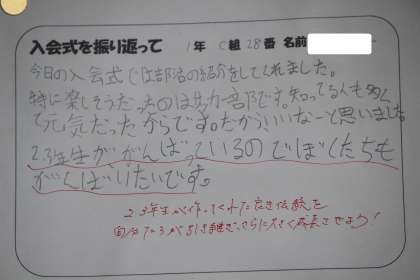 入会式を振り返って 1年 C組 28番 名前
今日の入会式では部活の紹介をしてくれました。
特に楽しそうだったのは 部です。知ってる人も多く
て元気だったからです。だからいいなーと思いました
2.3年生ががんばっているのでぼくたちも
がんばりたいです。
2.3年生が作ってくれた良き伝統を
自分たちが引き継ぎ、さらに大きく成長させよう!